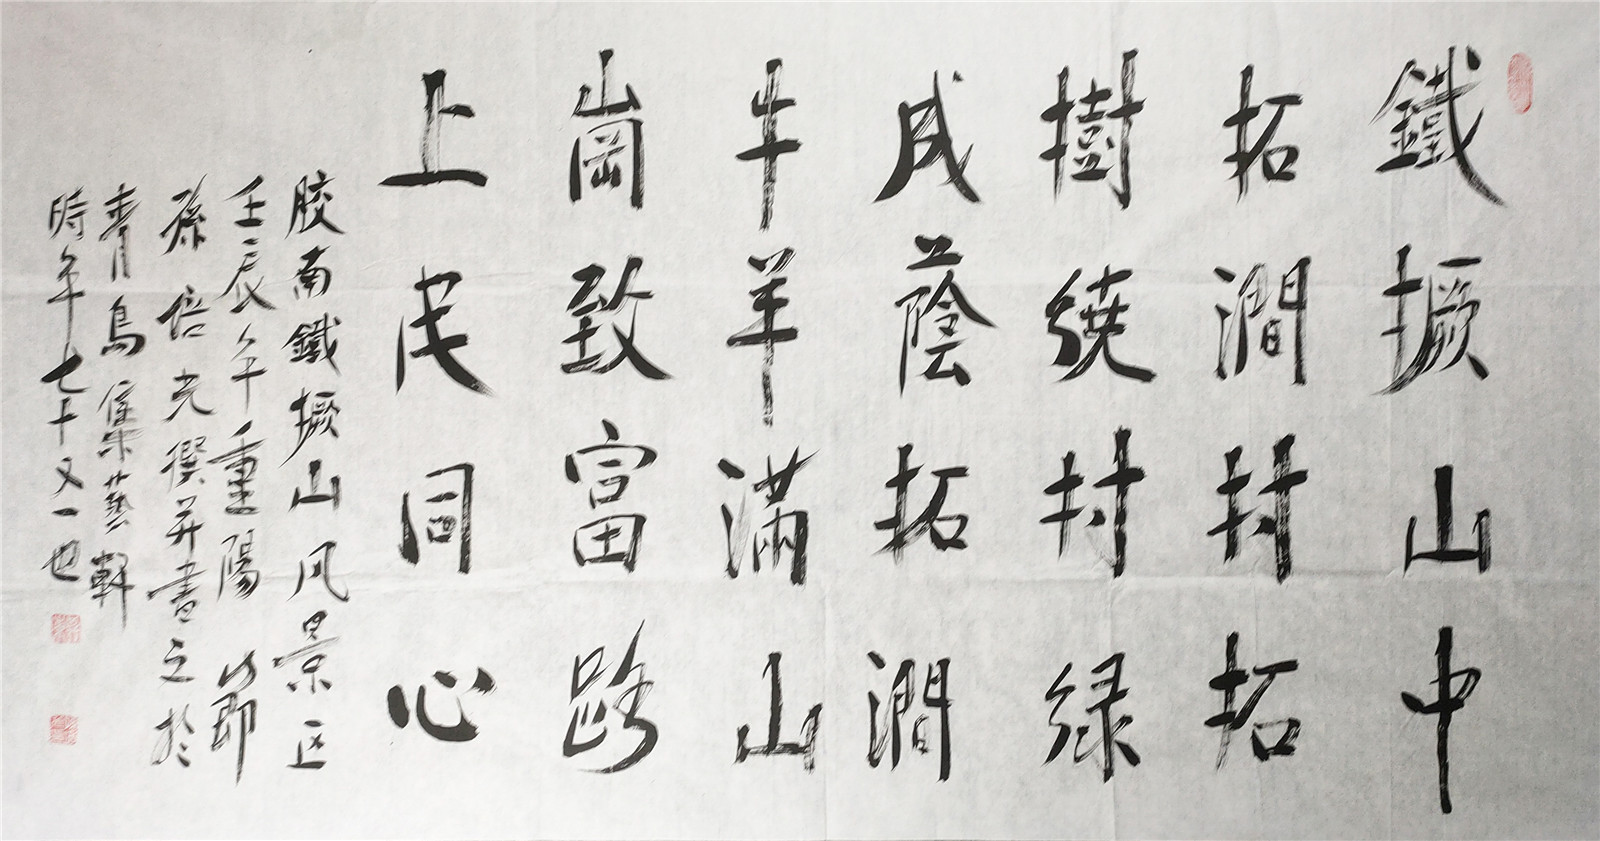 鐵橛山中
柘澗村柘
樹繞村綠
成蔭柘澗
牛羊滿山
崗致富路
上同心
胶南鐵橛山风景区
壬辰年重陽節
孫倍光撰并書之於
青島集藝軒
時年七十又一也